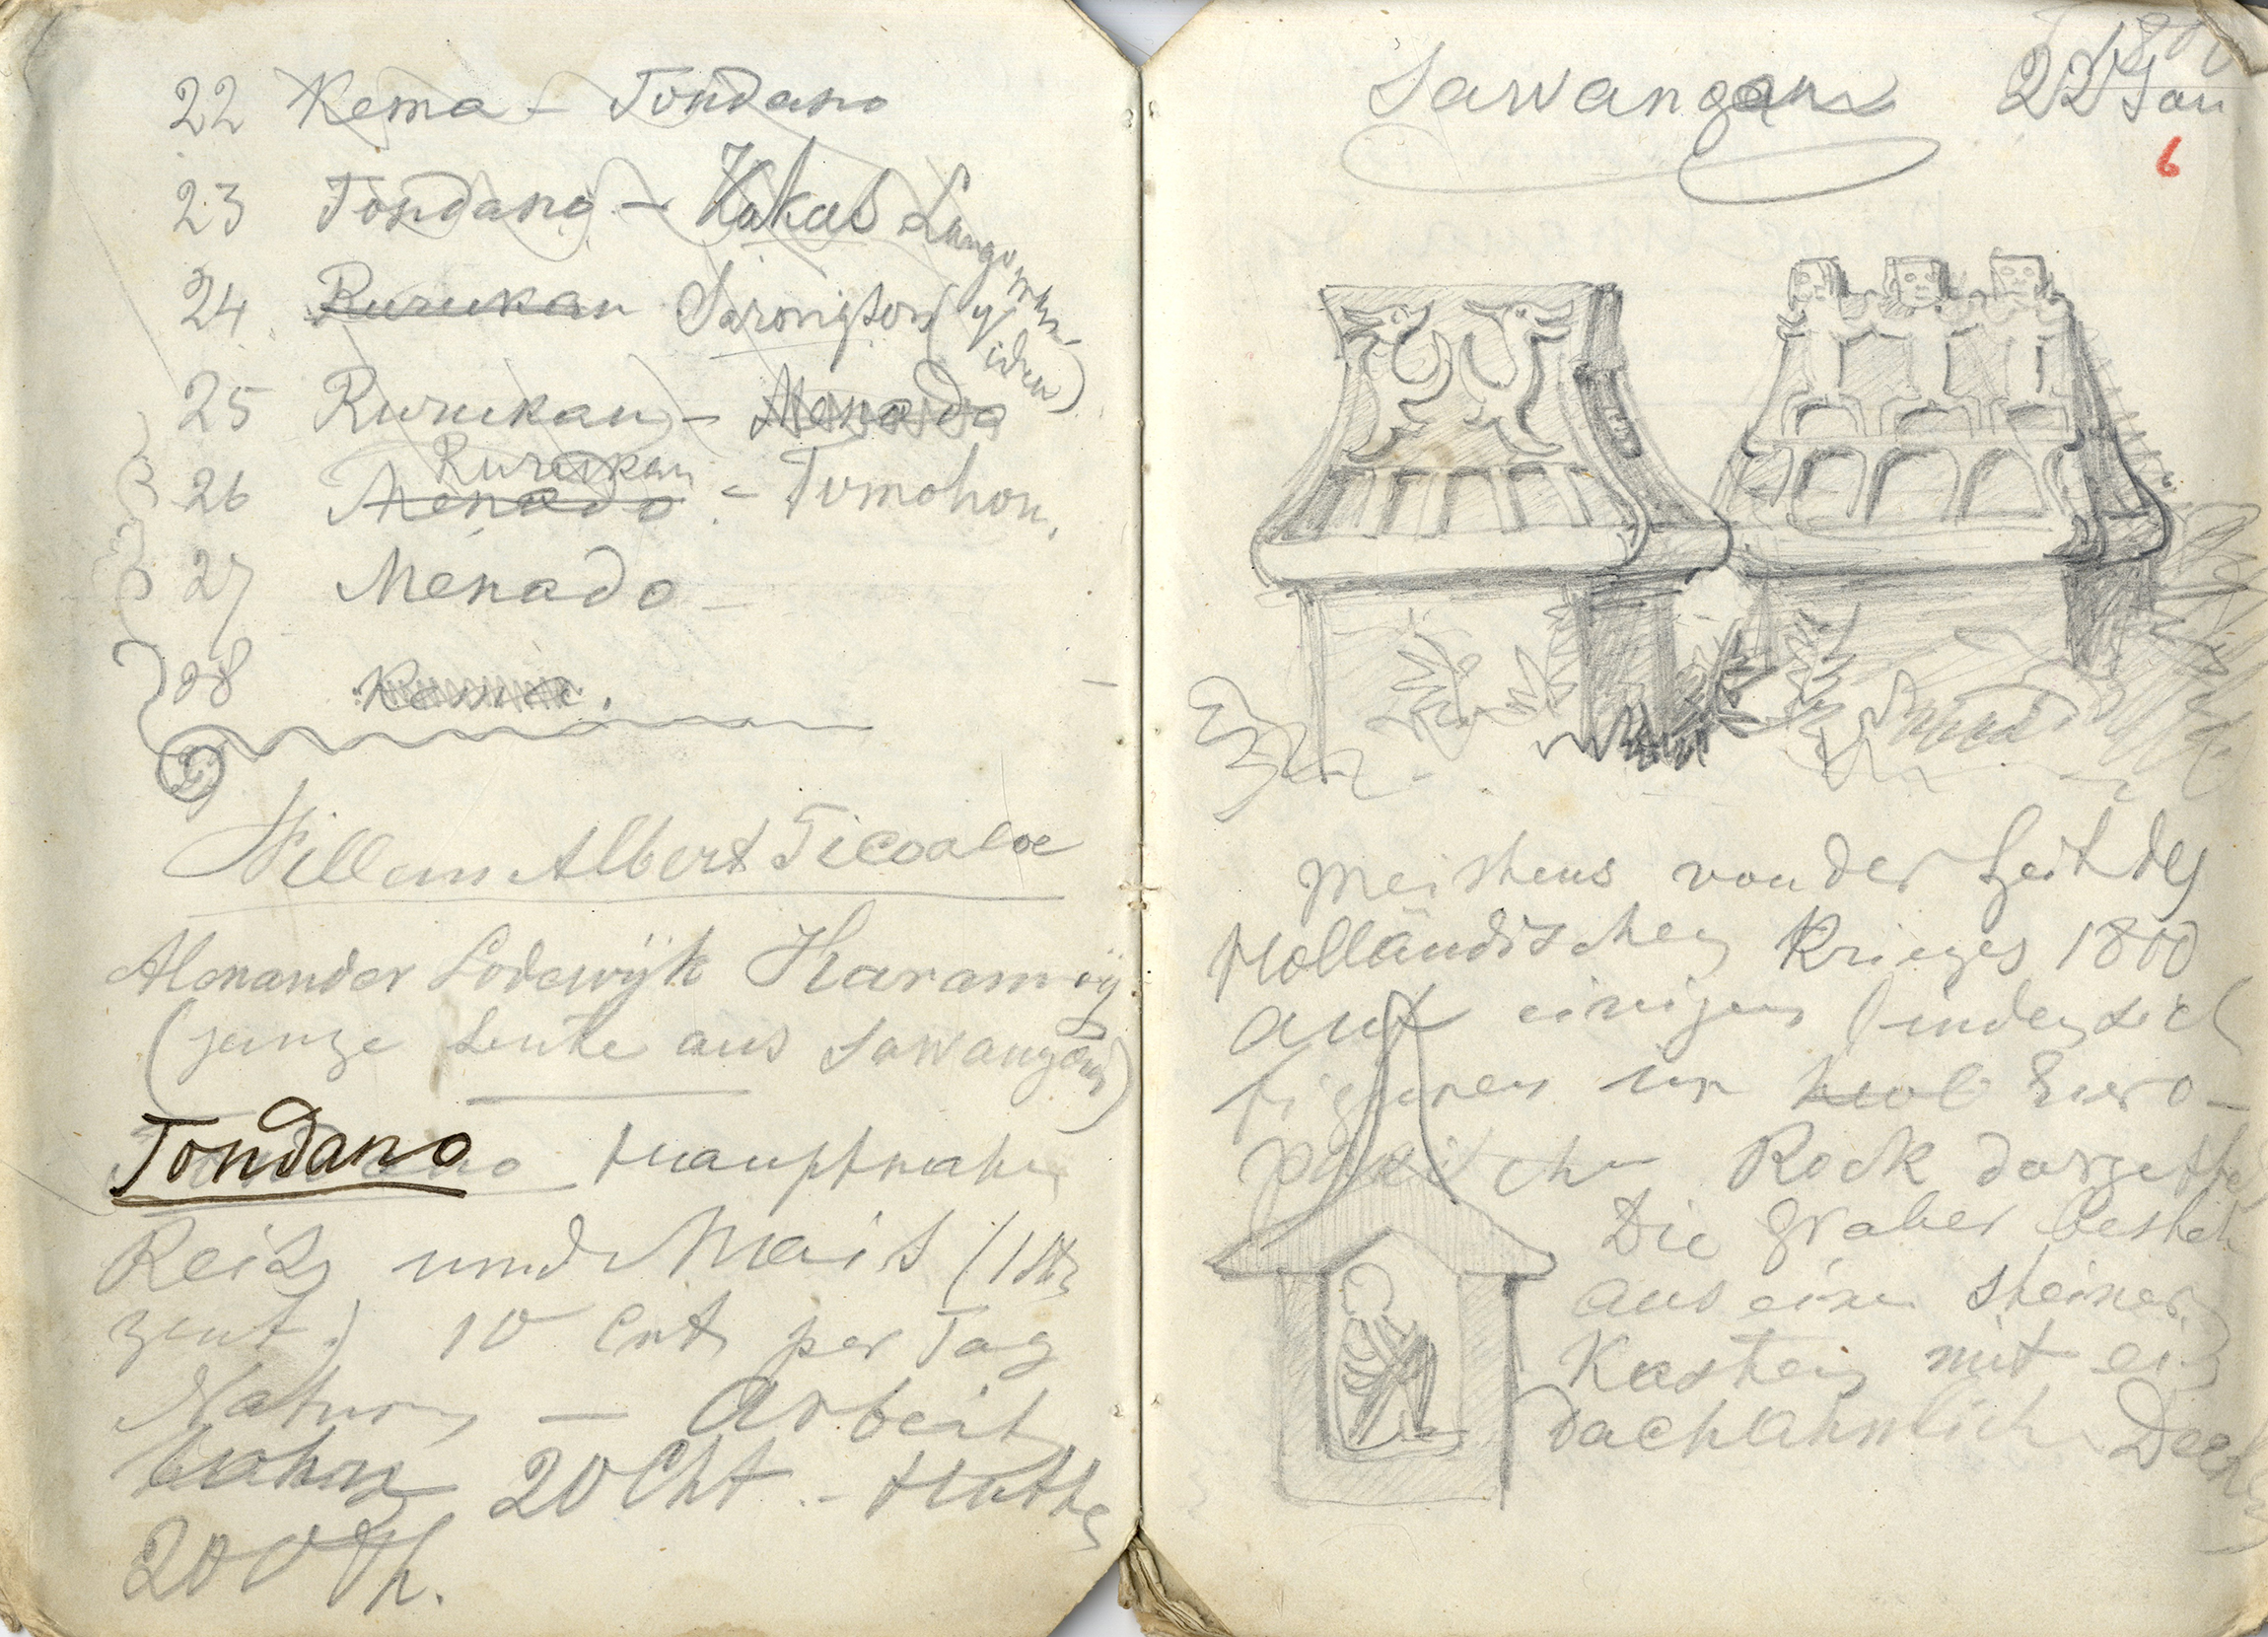 22 Kema - Tondano
23 Tondano - Kakas Langowan
24 Rurukan Sarongsong
25 Rurukan - Menado
Rurukan
26 Menado - Tomohon
27 Menado -
28
Willem Albert Ticoaloe
Alexander Lodewijk Karamoij
(junge Leute aus Sawangan)
Tondano Hauptnahr
Reis und Mais (1 St
zent.) 10 Cnt per Tag
Nahrung - Arbeit
20 Cnt - Hütte
200 fl.
Sawangan 22 Jan
6
Meistens von der Zeit des
Holländischen Krieges 1800
auf einigen finden sich
figuren im Euro-
päischen Rock dargest
Die Gräber besteh
aus einem steinern
Kasten mit ein
dachähnlich Deck